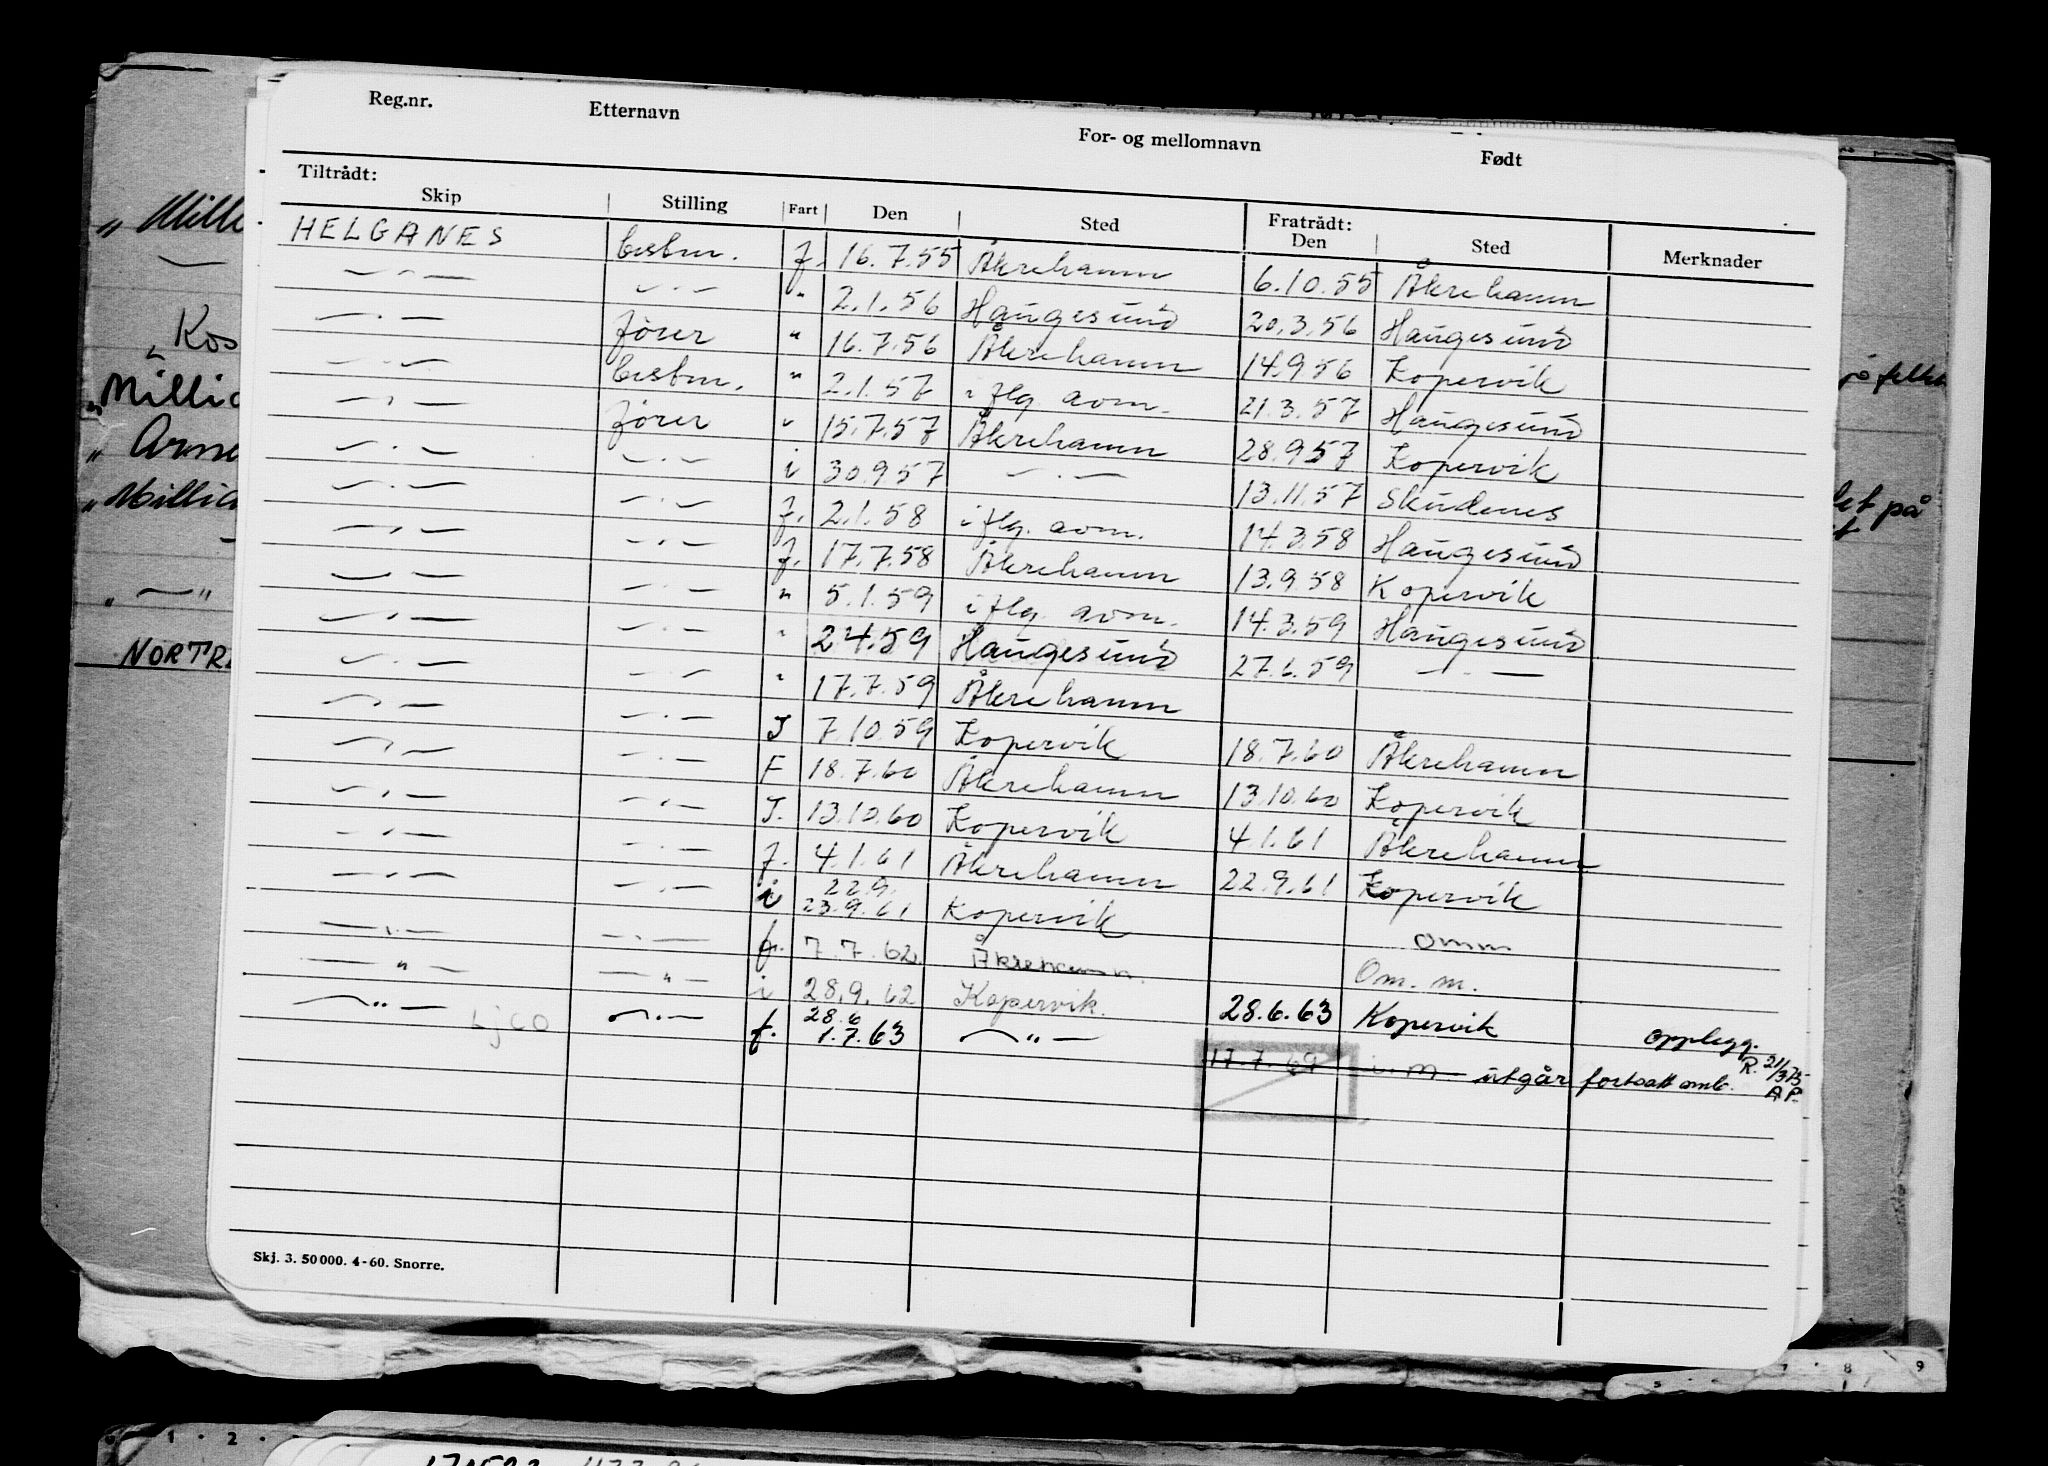 Reg.nr. Etternavn For- og mellomnavn Født
Tiltrådt: Fratrådt:
Skip Stilling Fart Den Sted Den Sted Merknader
HELGANES bestm. f. 16.7.55 Åkrehamn 6.10.55 Åkrehamn
— " — — " — " 2.1.56 Haugesund 20.3.56 Haugesund
— " — fører " 16.7.56 Åkrehamn 14.9.56 Kopervik
— " — bestm. " 2.1.57 iflg. avm. 21.3.57 Haugesund
— " — fører " 15.7.57 Åkrehamn 28.9.57 Kopervik
— " — — " — i 30.9.57 — " — 13.11.57 Skudenes
— " — — " — f. 2.1.58 iflg. avm. 14.3.58 Haugesund
— " — — " — f. 17.7.58 Åkrehamn 13.9.58 Kopervik
— " — — " — " 5.1.59 iflg. avm. 14.3.59 Haugesund
— " — — " — " 2.4.59 Haugesund 27.6.59 — " —
— " — — " — " 17.7.59 Åkrehamn
— " — — " — I 7.10.59 Kopervik 18.7.60 Åkrehamn
— " — — " — F 18.7.60 Åkrehamn 13.10.60 Kopervik
— " — — " — I. 13.10.60 Kopervik 4.1.61 Åkrehamn
— " — — " — f. 4.1.61 Åkrehamn 22.9.61 Kopervik
22.9.
— " — — " — i 23.9.61 Kopervik omm
— " — — " — f. 7.7.62 Åkrehamn. Om. m.
— " — — " — i 28.9.62 Kopervik. 28.6.63 Kopervik opplegg.
28.6
— " — LJCO — " — f. 1.7.63 — " — 17.7.69 i. m utgår fortsatt omb. R. 21/3 75 AP.
Skj. 3. 50 000. 4-60. Snorre.
" Mille
" Kos
" Millic
" Arne
" Millic
" — "
NORTR
let på
7 8 9
1 2